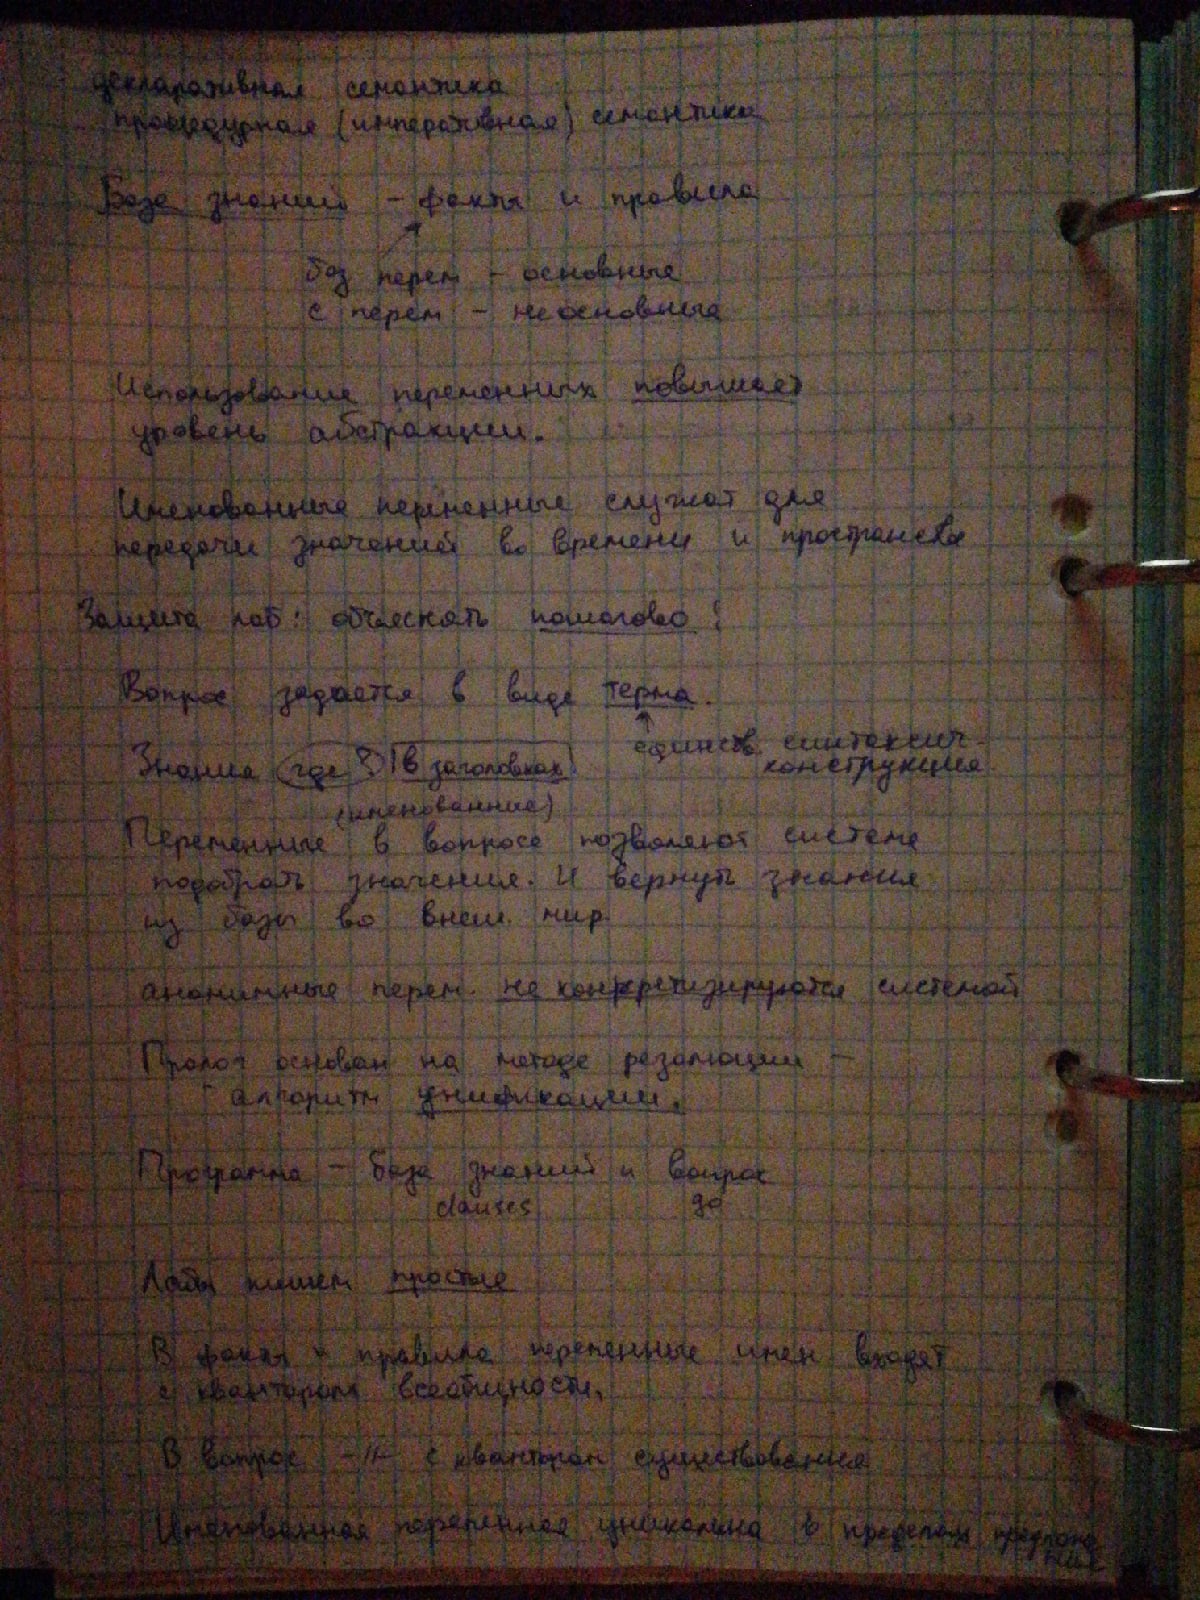 декларативная семантика
процедурная (императивная) семантика
База знаний - факты и правила
без перем - основные
с перем - неосновные
Использование переменных повышает
уровень абстракции.
Именованные переменные служат для
передачи значений во времени и пространстве
Защита лаб: объяснять пошагово!
Вопрос задается в виде терма.
единств. синтаксич.
конструкция
Знания где? в заголовках
(именованные)
Переменные в вопросе позволяют системе
подобрать значения. И вернуть знания
из базы во внеш. мир.
анонимные перем. не конкретизируются системой
Пролог основан на методе резолюции -
алгоритм унификации.
Программа - база знаний и вопрос
clauses go
Лабы пишем простые
В факты и правила переменные имен входят
с квантором всеобщности.
В вопрос -//- с квантором существования
Именованная переменная уникальна в пределах предложе
ния